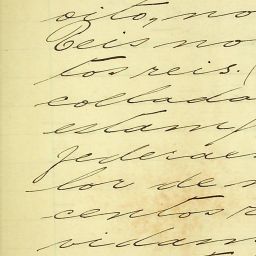 oito, no
Reis no
tos reis. (
collada
estamp
federae
lor de
centos
vidam